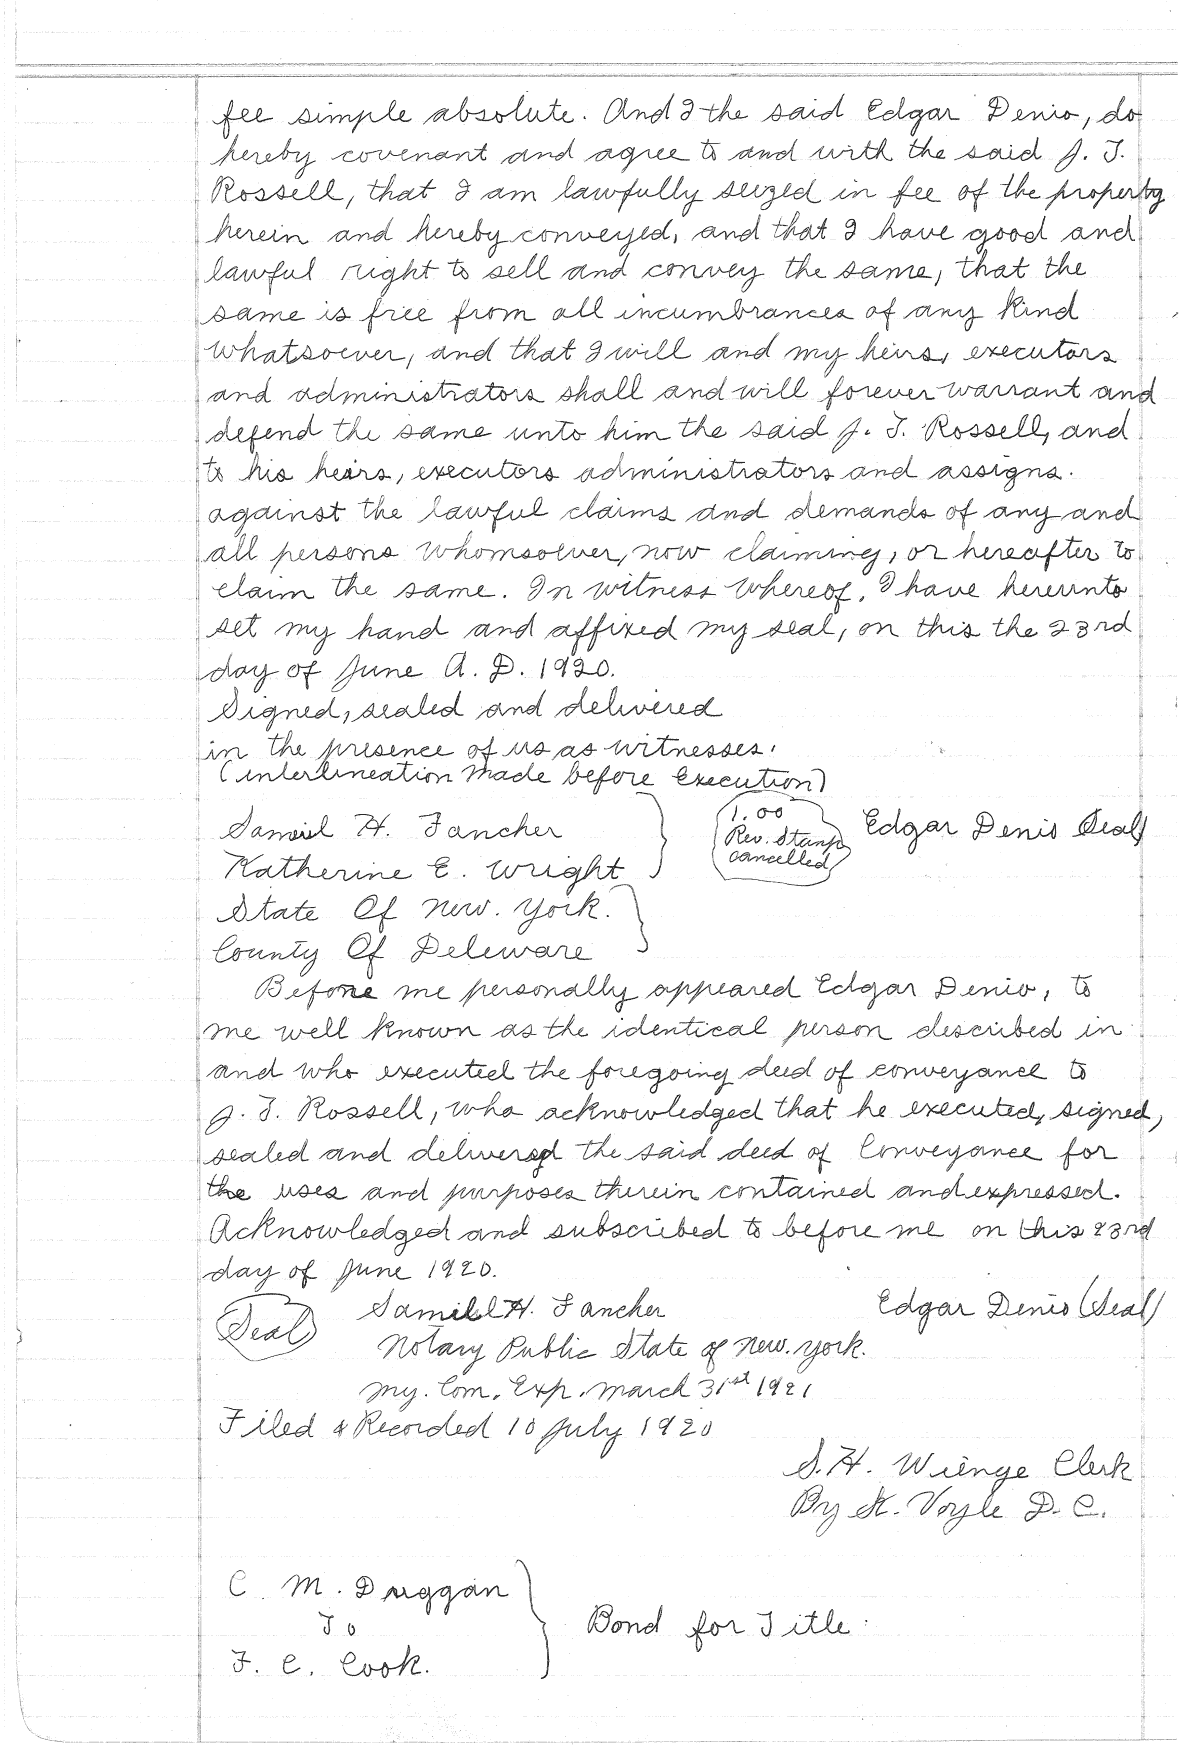 fee simple absolute. And I the said Edgar Denio, do
hereby covenant and agree to and with the said J. T.
Rossell, that I am lawfully seized in fee of the property
herein and hereby conveyed, and that I have good and
lawful right to sell and convey the same, that the
same is free from all incumbrances of any kind
whatsoever, and that I will and my heirs, executors
and administrators shall and will forever warrant and
defend the same unto him the said J. T. Rossell, and
to his heirs, executors administrators and assigns.
against the lawful claims and demands of any and
all persons whomsoever, now claiming, or hereafter to
claim the same. In witness whereof, I have hereunto
set my hand and affixed my seal, on this the 23rd
day of June A. D. 1920.
Signed, sealed and delivered
in the presence of us as witnesses.
(interlineation made before execution)
Samuil H. Fancher
Katherine E. Wright
1.00
Rev. Stamp
cancelled
Edgar Denio Seal)
State Of New. York.
County Of Deleware
Before me personally appeared Edgar Denio, to
me well known as the identical person described in
and who executed the foregoing deed of conveyance to
J. T. Rossell, who acknowledged that he executed, signed,
sealed and delivered the said deed of Conveyance for
the uses and purposes therein contained and expressed.
Acknowledged and subscribed to before me on this 23rd
day of June 1920.
(Seal) Samuel H. Fancher Edgar Denio (Seal)
Notary Public State of New. York.
My. Com. Exp. March 31st 1921
Filed & Recorded 10 July 1920
S. H. Wienge Clerk
By St. Voyle D. C.
C. M. Duggan
To
F. C. Cook.
Bond for Title.